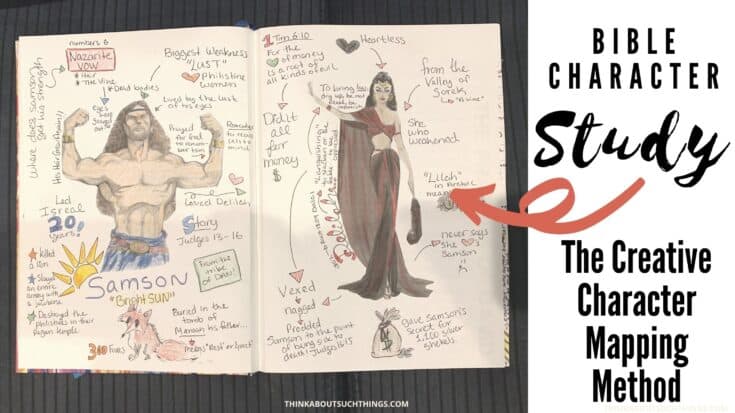 numbers 6
Nazarite
vow
* Hair
* The Vine
* Dead bodies
Where does samson
get his strength
Biggest Weakness
"LUST"
Philistine
women
Lived by the lust
of his eyes
eyes
gouged
out
Prayed for God
to remem-
ber him
Loved Delilah
Led
Isreal
20
years!
Story
Judges 13-16
killed
a lion
Slayed
an entire
army with a
jawbone
Destroyed the
philistines in their
Pagan temple
SAMSON
"Bright SUN"
From the
tribe
of DAN!
300 Foxes
Buried in the
tomb of
Manoah his father...
means "Rest" or
1 Tim 6:10
For the
of money
is a root of
all kinds of evil
Heartless
Did it
all
for
money
$
To bring
from the
Valley of
Sorek
She
who
weakened
"Lilah"
in Arabic
means
Delilah
never says
she
Samson
Vexed
nagged
Prodded
Samson to the point
of being sick to
death! Judges 16:16
Gave Samson's
secret for
1,100 silver
shekels.
$
BIBLE
CHARACTER
Study
The Creative
Character
Mapping
Method
THINKABOUTSUCHTHINGS.COM